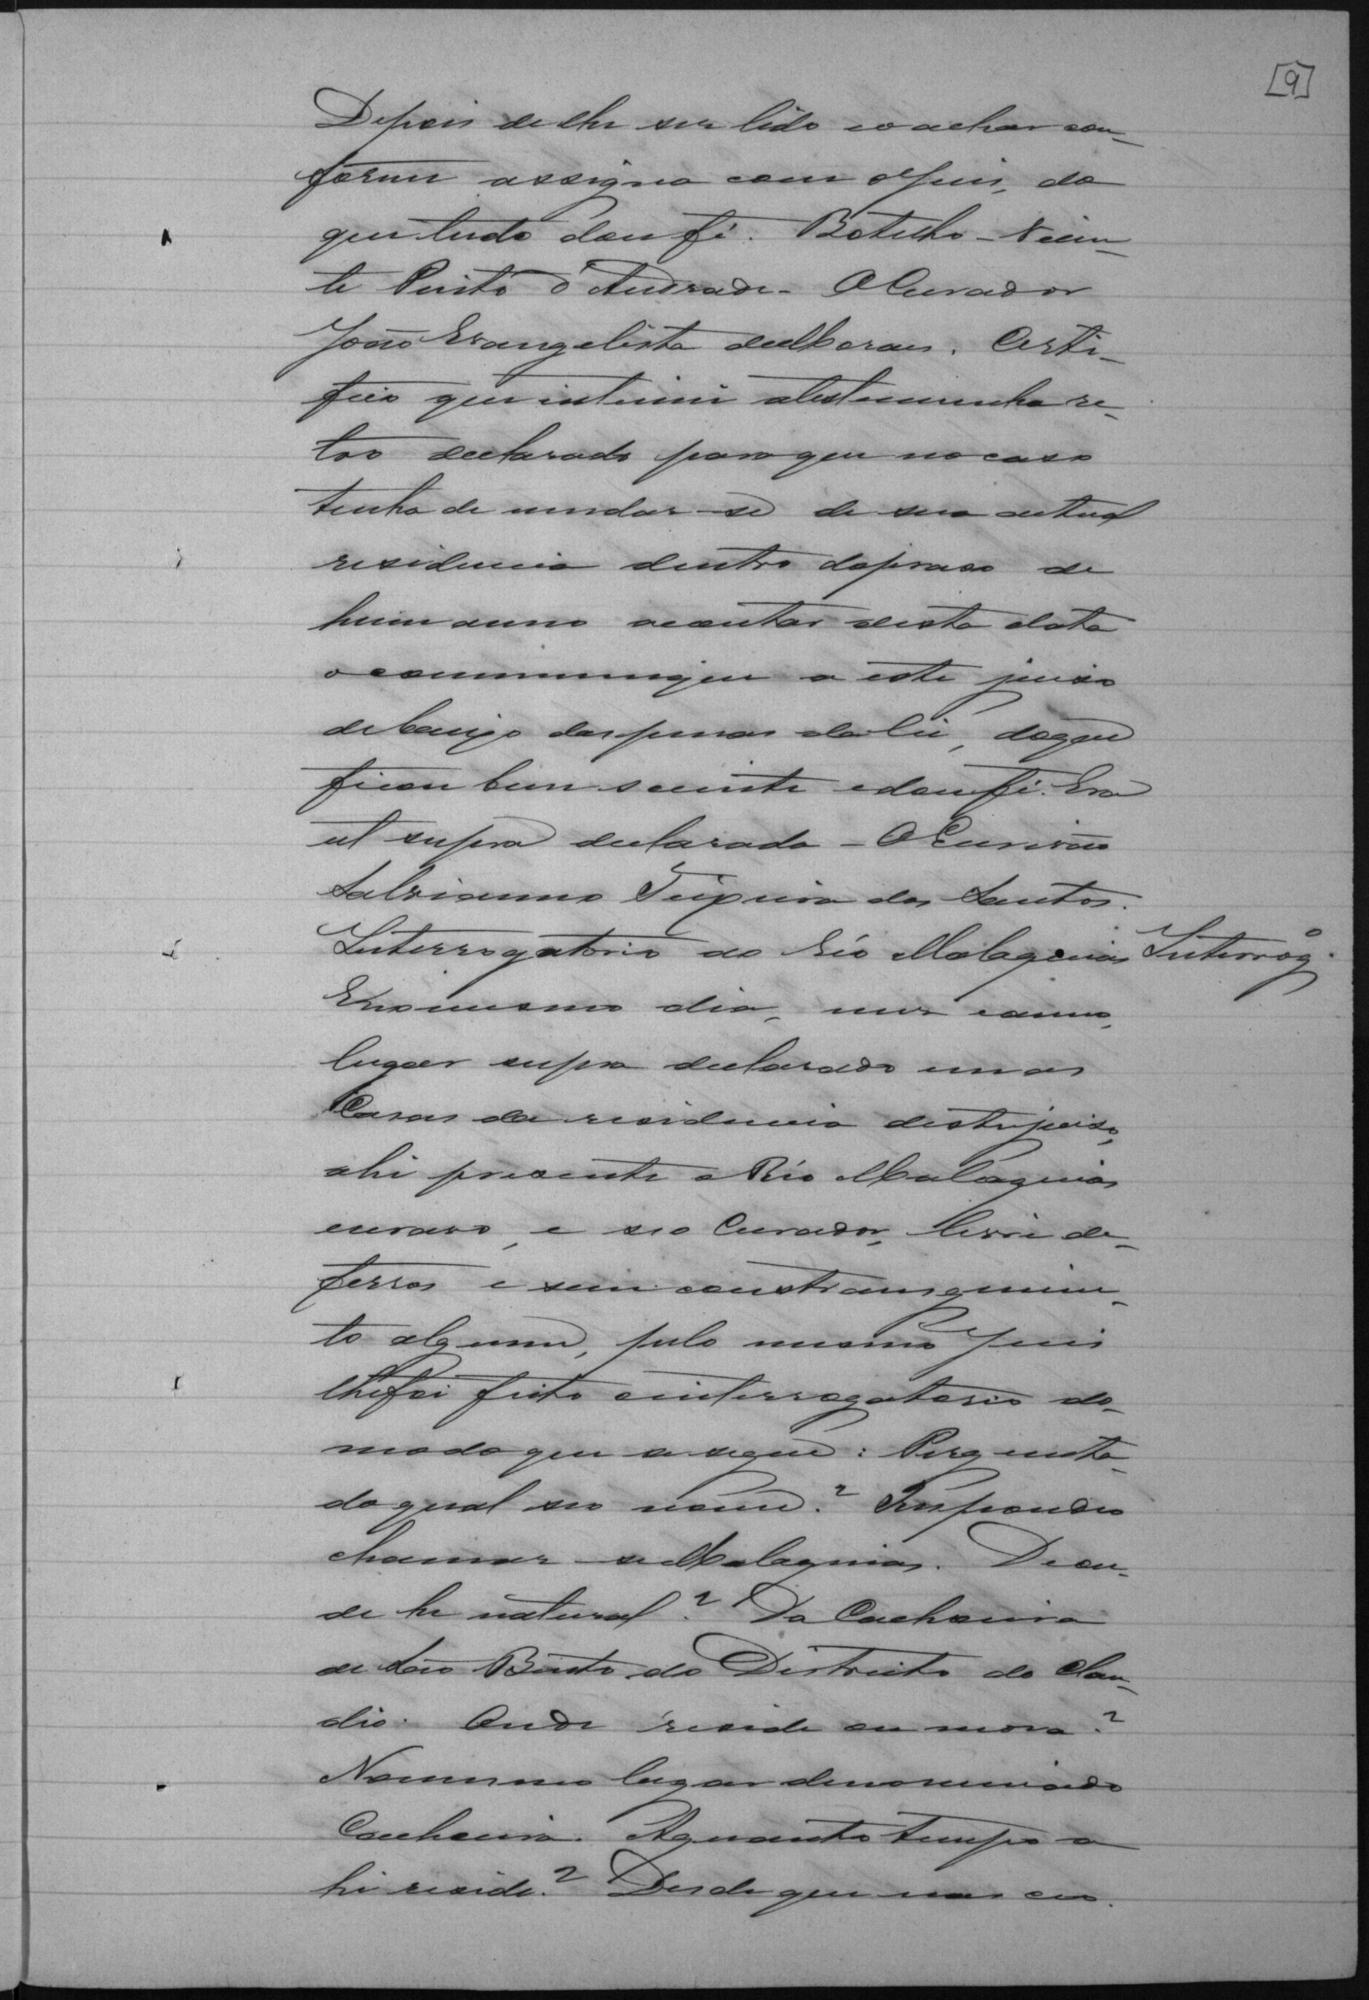 [9]
Depois de lhe ser lido e o achar con-
forme assigna com o Juis, do
que tudo dou fé. Botelho - Vicen-
te Pinto d'Andrade - O Curador
João Evangelista de Moraes. Certi-
fico que intimei a testemunha re-
tro declarado para que no caso
tenha de mudar-se de sua actual
residencia dentro do praso de
hum anno a contar desta data
o communique a este juiso
debaixo das penas da lei, do que
ficou bem sciente e dou fé. Era
ut supra declarada - O Escrivão
Salvianno Teixeira dos Santos.
Interrogatorio do Réo Malaquias Interrogº.
E no mesmo dia, mes e anno,
lugar supra declarado em as
Casas da residencia deste juiso,
ahi presente o Réo Malaquias
escravo, e seo Curador, livre de
ferros e sem constrangimen-
to algum, pelo mesmo Juis
lhe foi feito o interrogatorio do
modo que se segue: Pergunta-
do qual seo nome? Respondeo
chamar-se Malaquias. De on-
de he natural? Da Cachoeira
de São Bento do Districto do Clau-
dio. Onde reside ou mora?
No mesmo lugar denominado
Cachoeira. A quanto tempo a
hi reside? Desde que nasceo.